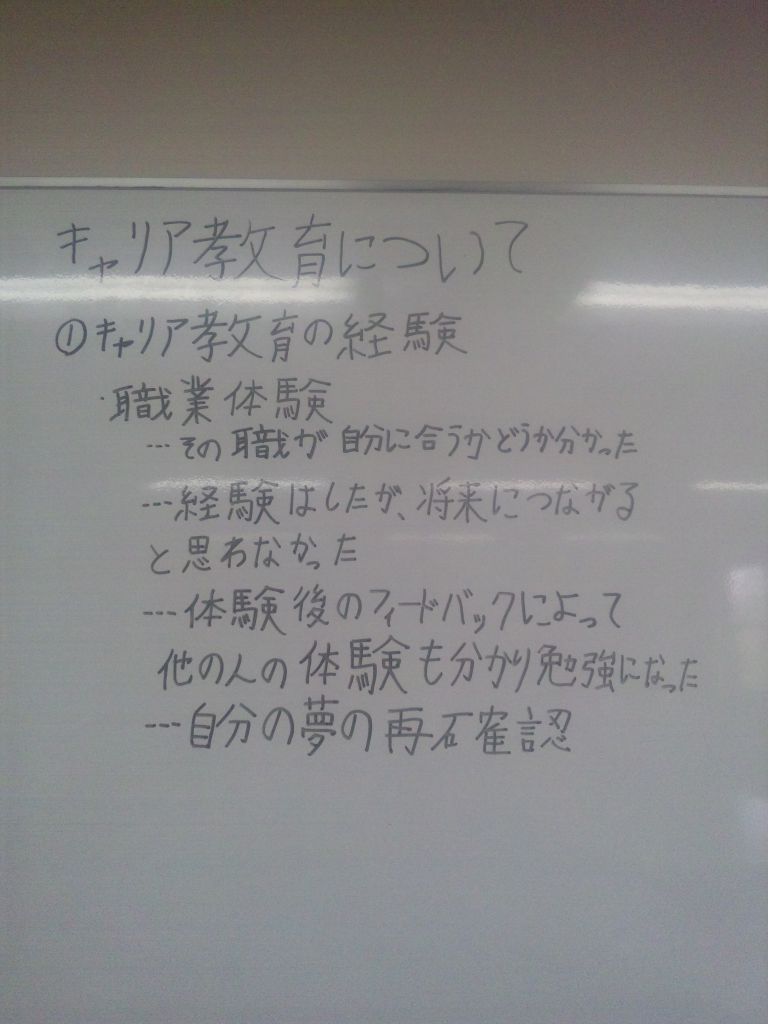 キャリア教育について
①キャリア教育の経験
・職業体験
---その職が自分に合うかどうか分かった
---経験はしたが、将来につながる
と思わなかった
---体験後のフィードバックによって
他の人の体験も分かり勉強になった
---自分の夢の再確認